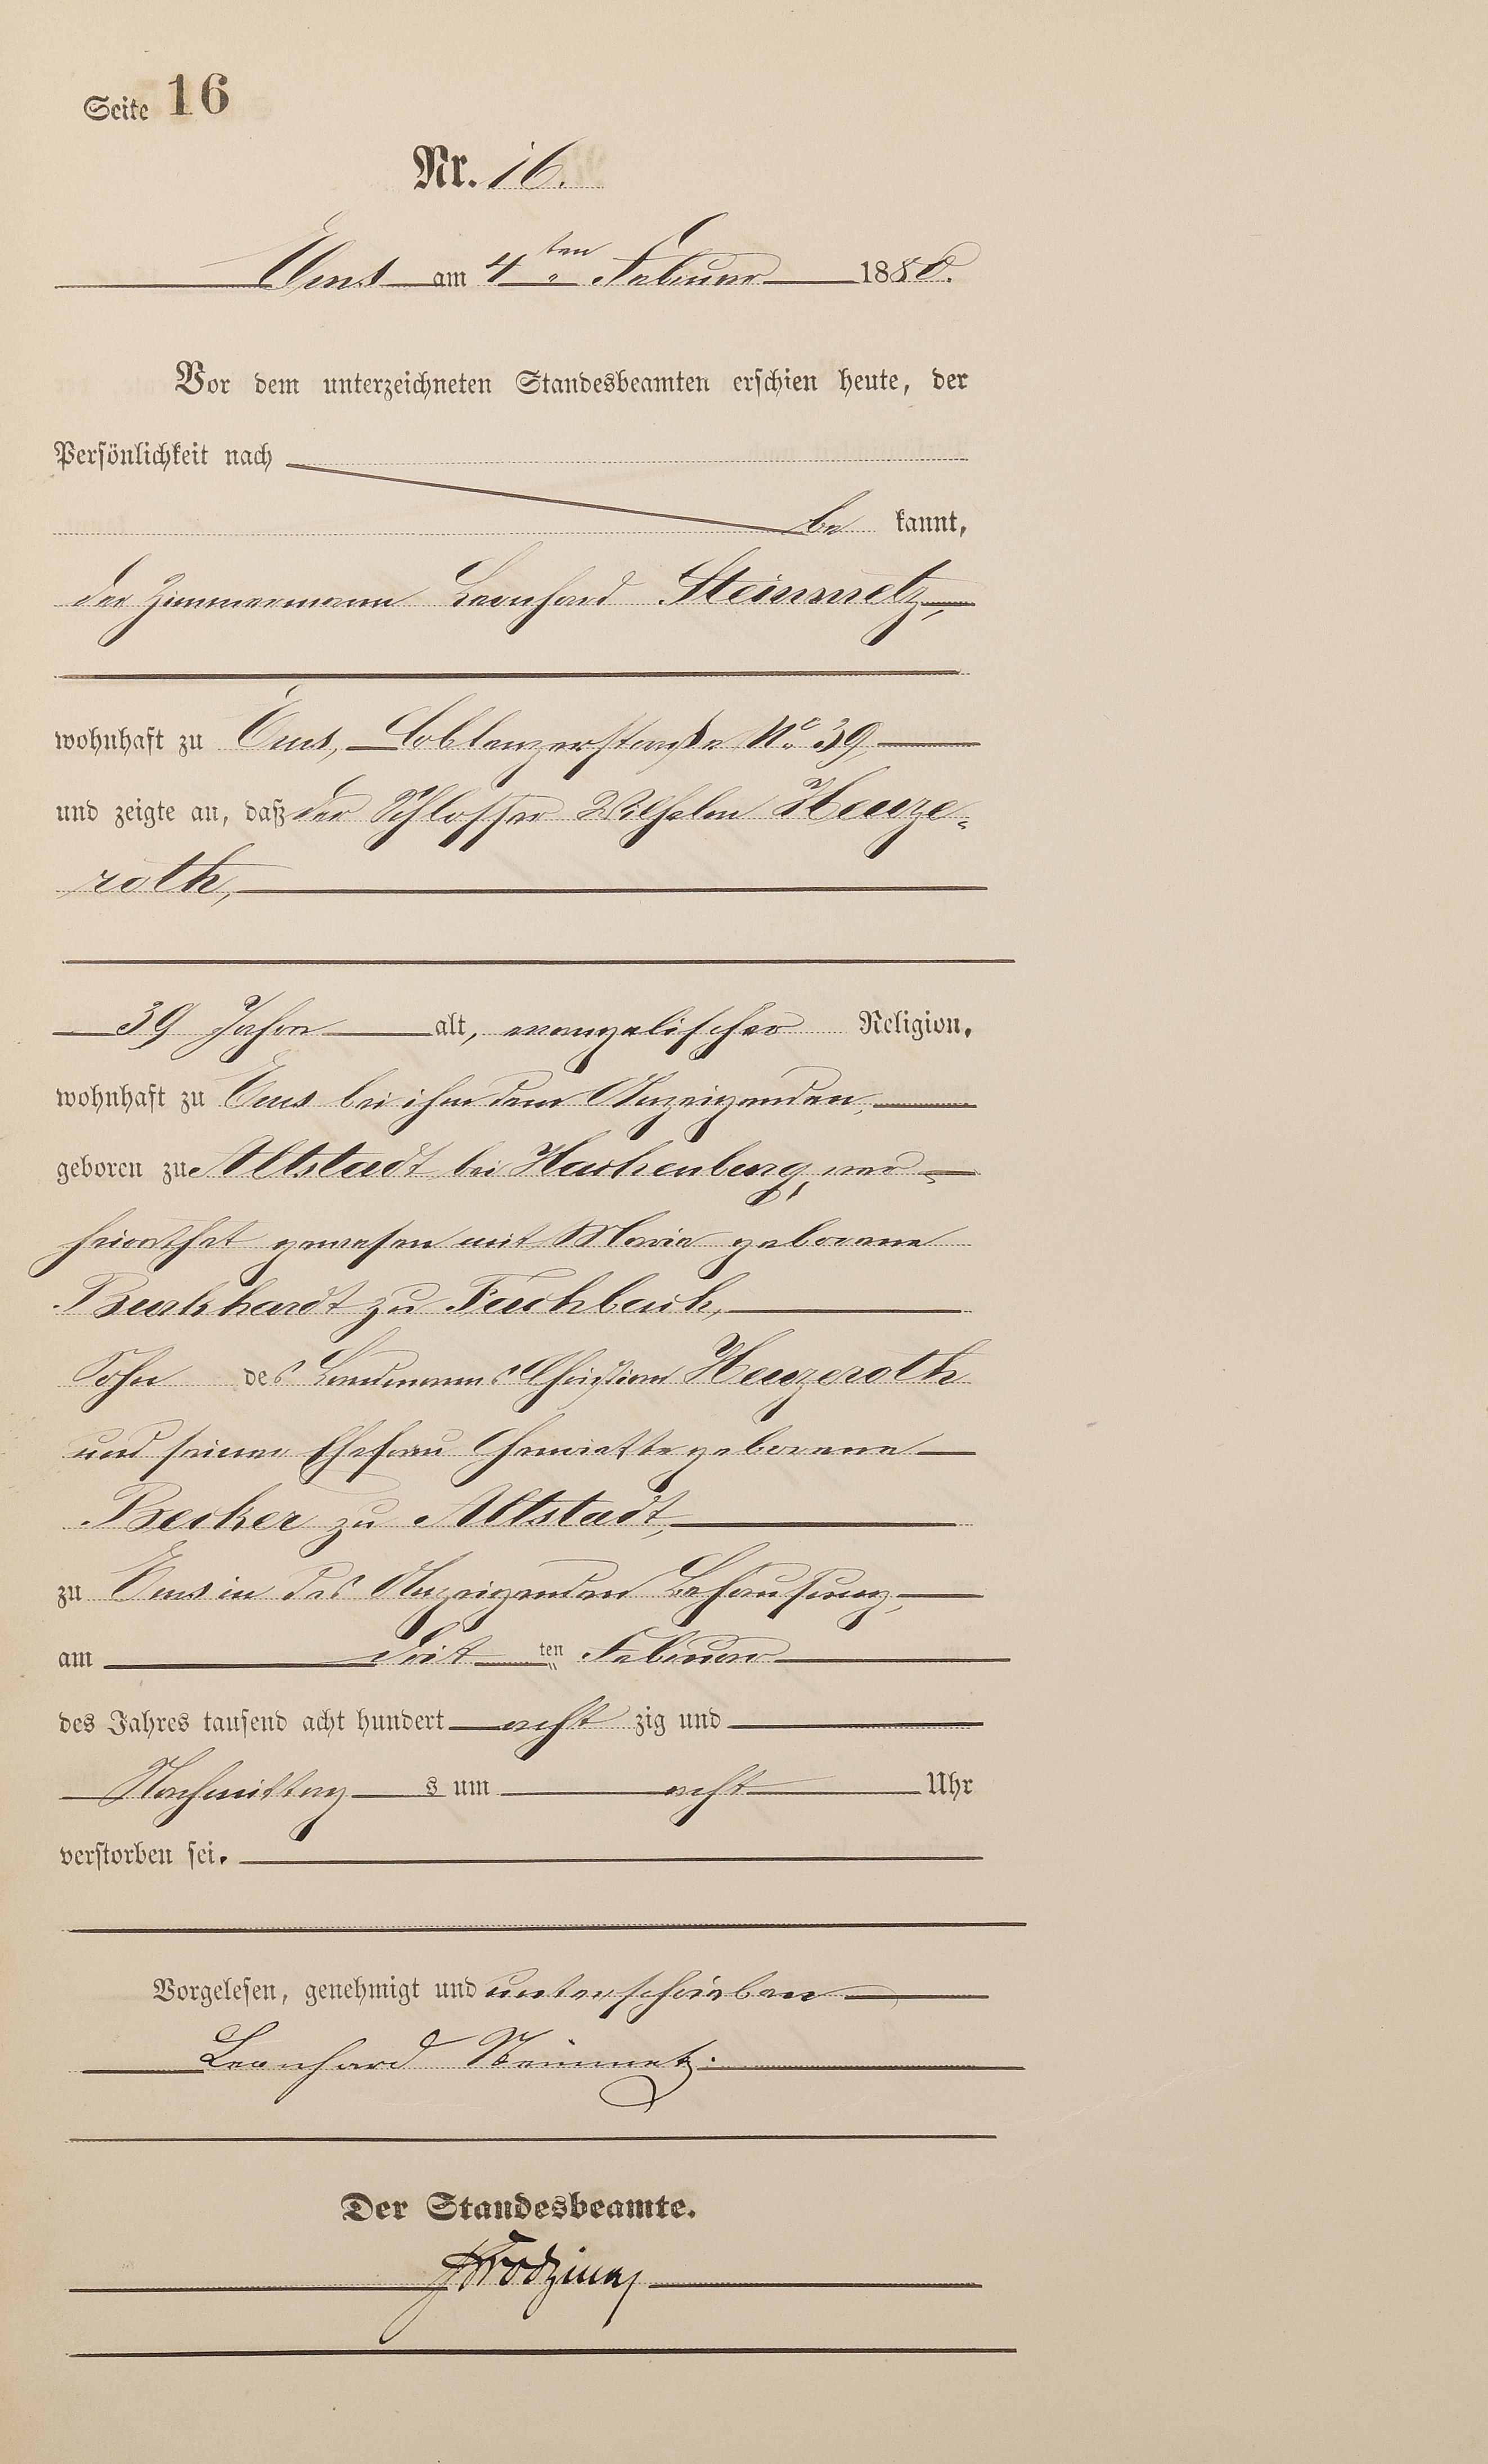 Seite 16
Nr. 16.
Ems am 4ten Februar 1880.
Vor dem unterzeichneten Standesbeamten erschien heute, der
Persönlichkeit nach
be kannt,
der Zimmermann Leonhard Steinmetz,
wohnhaft zu Ems, Coblenzerstraße No 39,
und zeigte an, daß der Schlosser Wilhelm Henze-
roth,
39 Jahre alt, evangelischer Religion,
wohnhaft zu Ems bei ihm dem Anzeigenden,
geboren zu Altstadt bei Hachenburg, ver-
heirathet gewesen mit Maria geborene
Burkhardt zu Fachbach,
Sohn des Landmanns Christian Henzeroth
und seiner Ehefrau Henriette geborene
Becker zu Altstadt,
zu Ems in des Anzeigenden Behausung,
am dritten Februar
des Jahres tausend acht hundert acht zig und
Nachmittag s um acht Uhr
verstorben sei.
Vorgelesen, genehmigt und unterschrieben
Leonhard Steinmetz.
Der Standesbeamte.